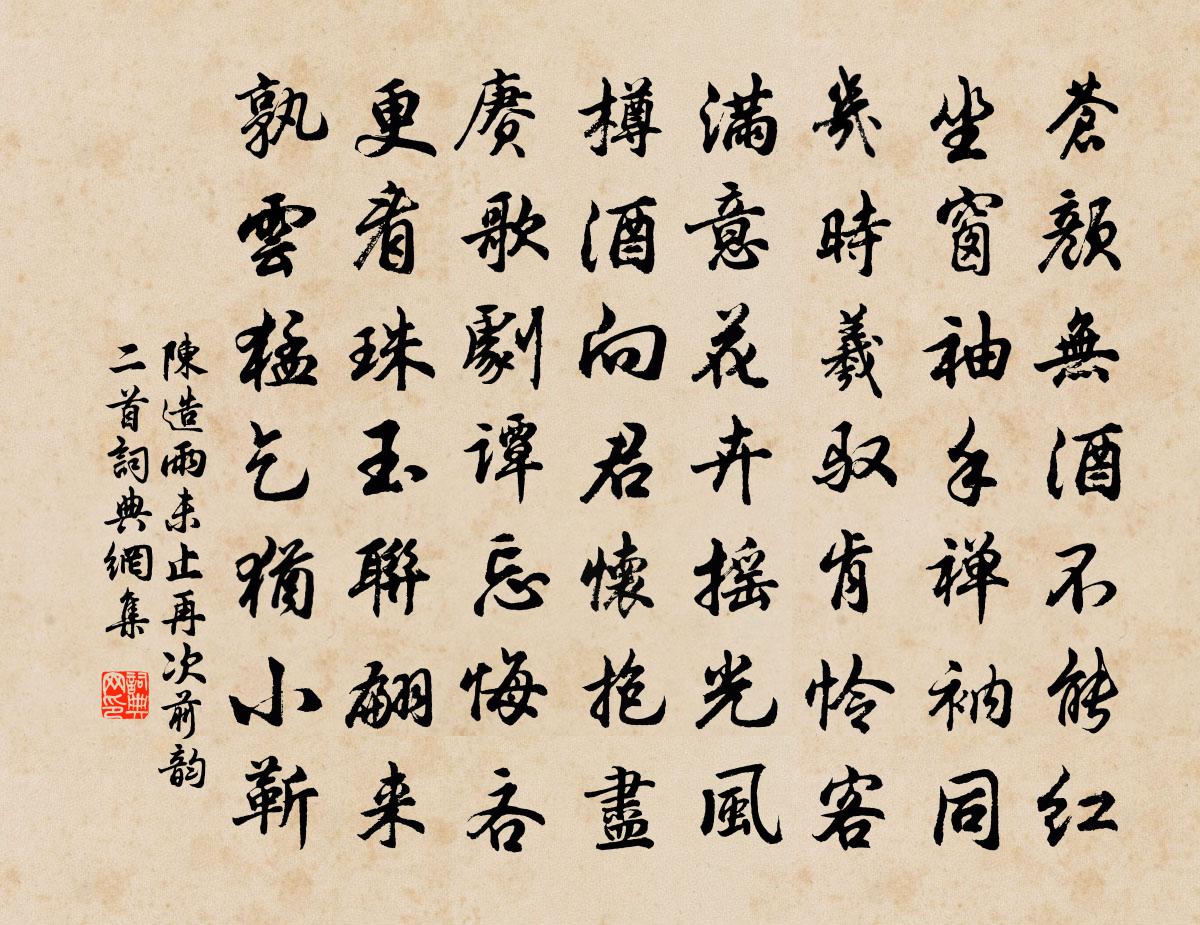 蒼顏無酒不能紅
坐窗袖手禅衲同
幾時羲馭肯怜客
滿意花卉摇光風
樽酒向君懷抱盡
赓歌劇譚忘悔吝
更看珠玉聯翩来
孰雲猛乞猶小靳
陳造雨未止再次前韵
二首詞典網集
詞典網印